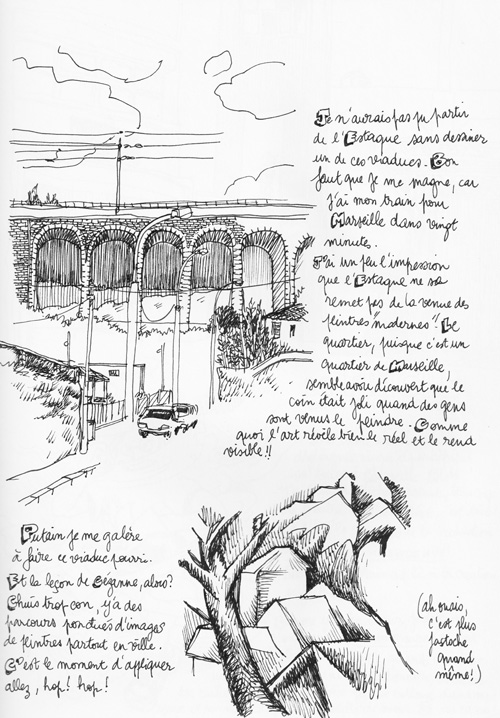 Je n'aurais pas pu partir
de l'Estaque sans dessiner
un de ces viaducs. Bon
faut que je me magne, car
j'ai mon train pour
Marseille dans vingt
minutes.
J'ai un peu l'impression
que l'Estaque ne se
remet pas de la venue des
peintres "modernes". Le
quartier, puisque c'est un
quartier de Marseille,
semble avoir découvert que le
coin était joli quand des gens
sont venus le peindre. Comme
quoi l'art révèle bien le réel et le rend
visible!!
Putain je me galère
à faire ce viaduc pourri.
Et la leçon de Cézanne, alors?
Chuis trop con, y'a des
parcours ponctués d'images
de peintres partout en ville.
C'est le moment d'appliquer
allez, hop! hop!
(ah ouais,
c'est plus
fastoche
quand
même!)